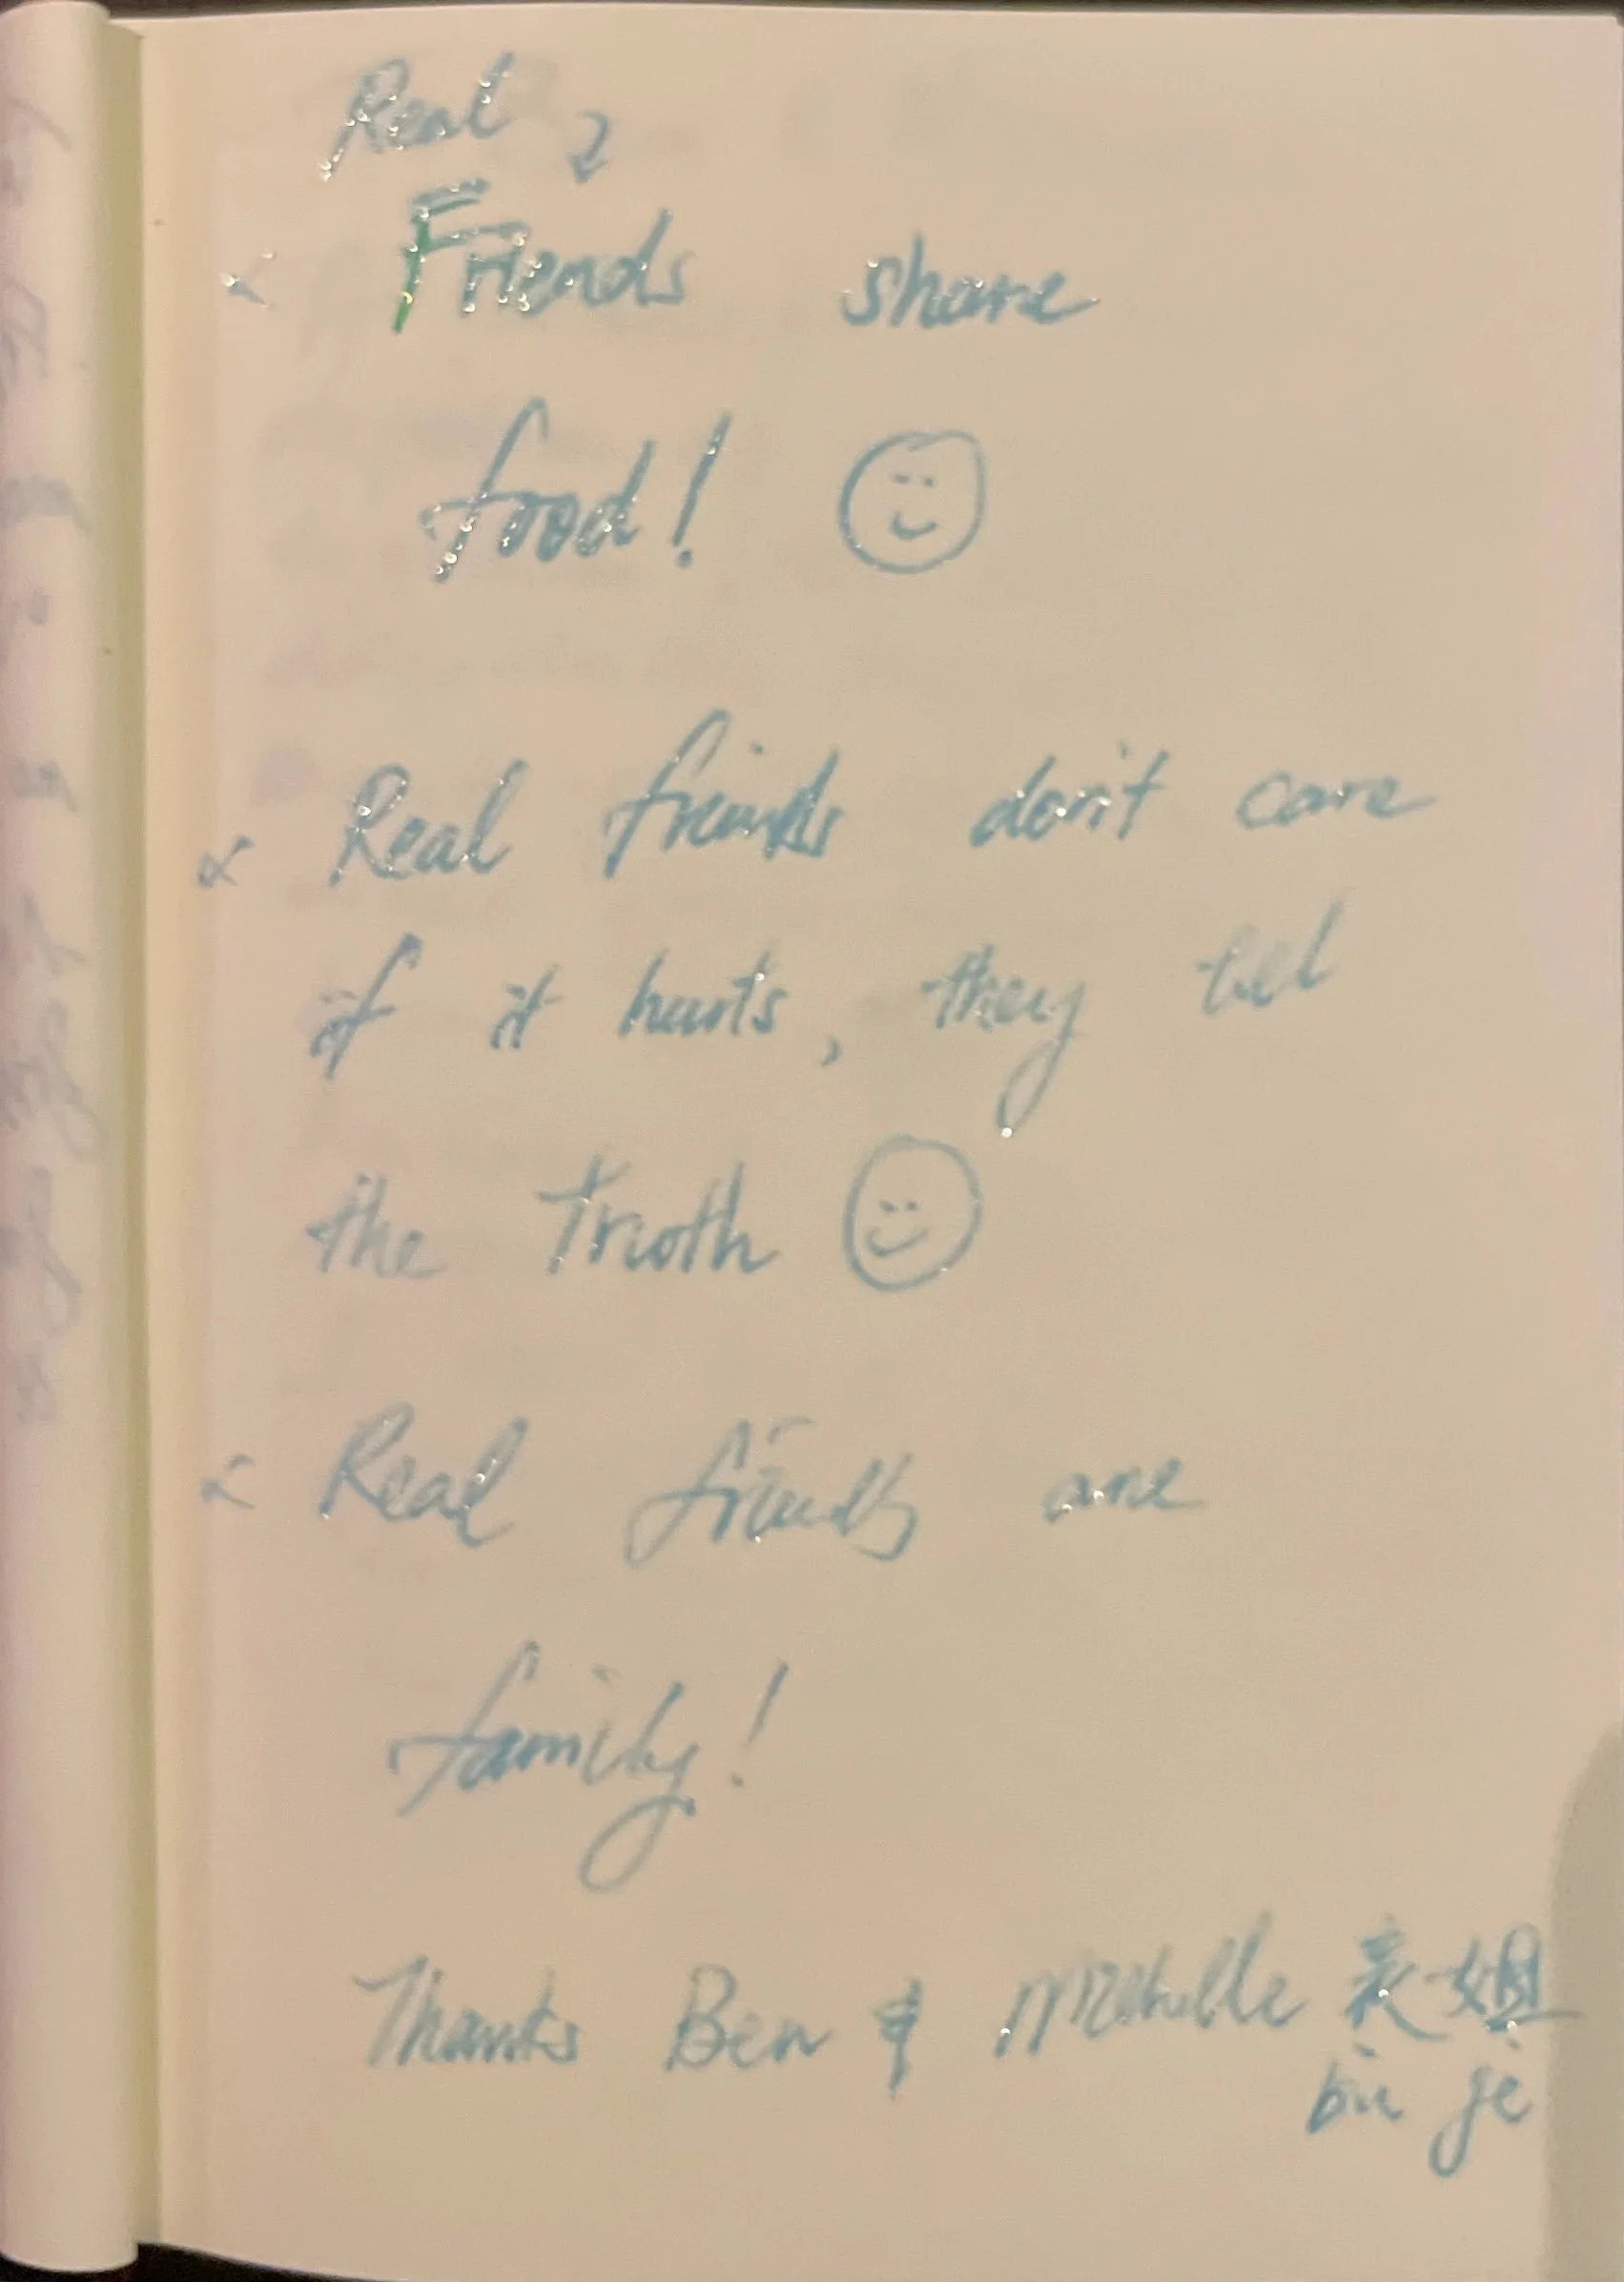 Real
Friends share
food!
Real friends don't care
if it hurts, they tell
the truoth
Real friends are
family!
Thanks Ben & Michelle 表姐